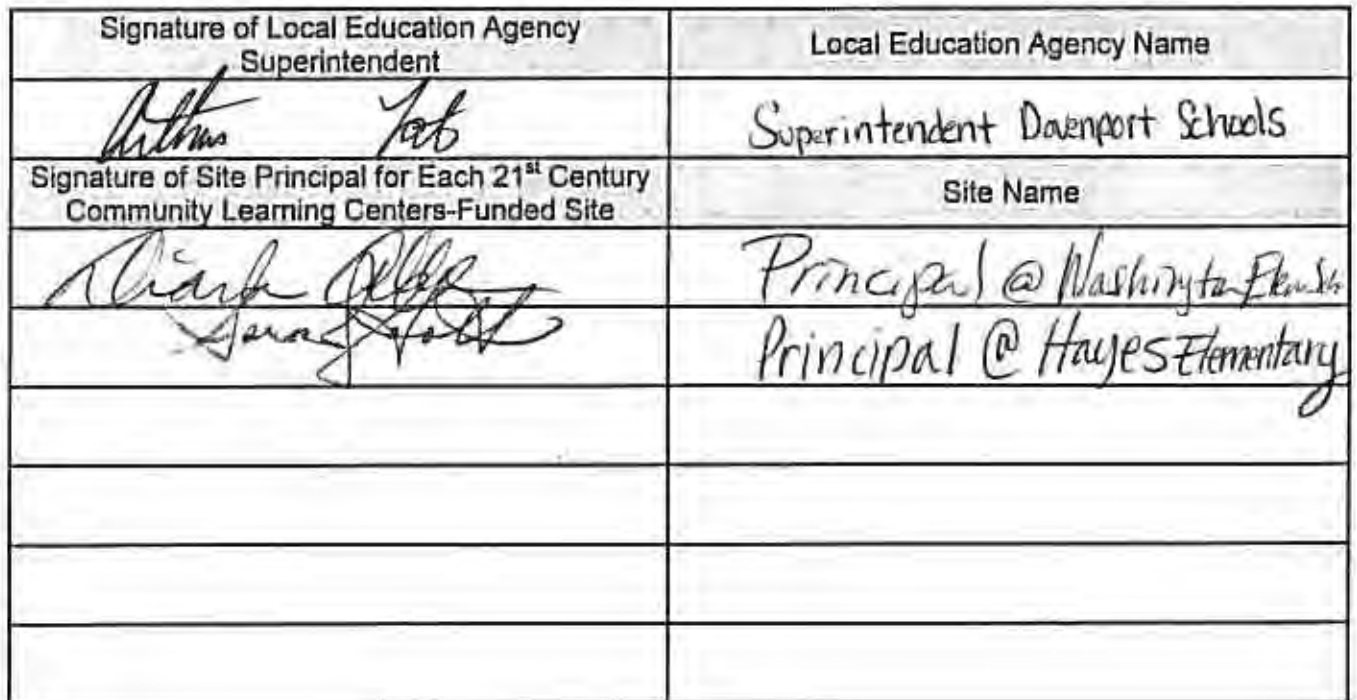 Signature of Local Education Agency
Superintendent
Local Education Agency Name
Arthur Tate
Superintendent Davenport Schools
Signature of Site Principal for Each 21st Century
Community Learning Centers-Funded Site
Site Name
Principal @ Washington Elem. Sch
Principal @ Hayes Elementary